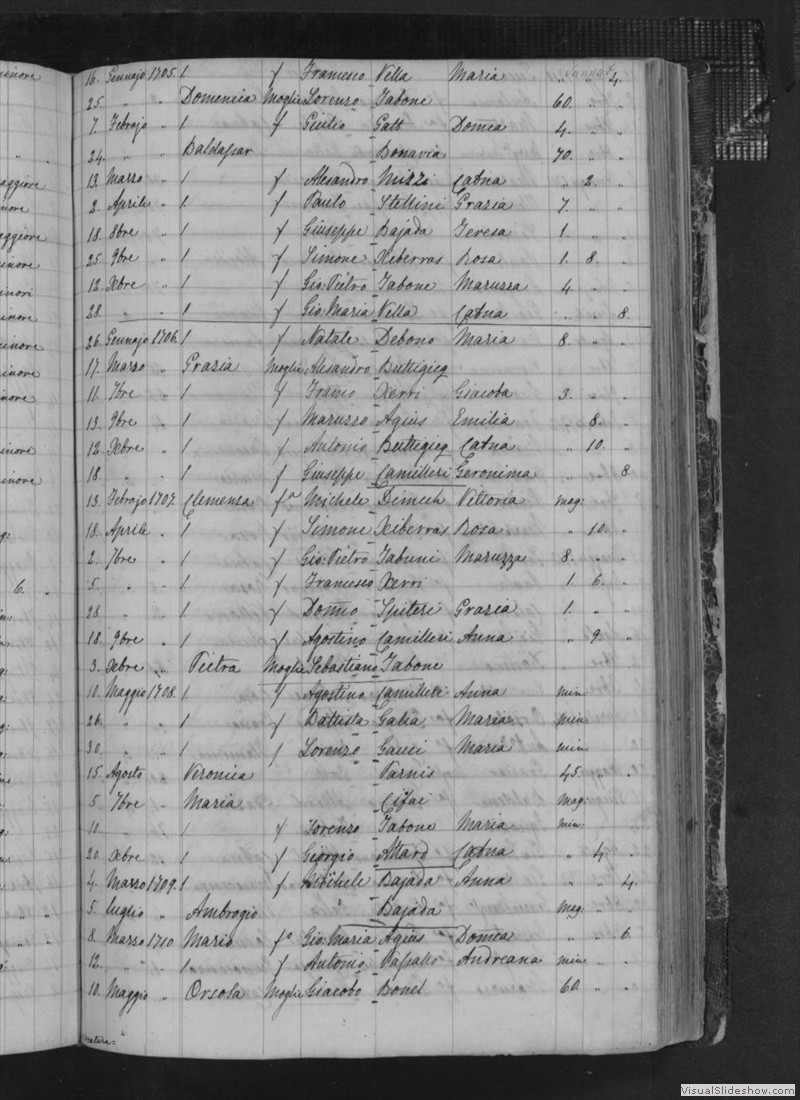 16. Gennajo 1705. 1 f Francesco Vella Maria " " 4.
25. " " Domenica Moglie Lorenzo Tabone 60. "
7. Febrajo " 1 f Giulio Gatt Domca 4. "
24. " " Baldassar Bonavia 70. "
13. Marzo " 1 f Alesandro Mizzi Catna " 2. "
2. Aprile " 1 f Paulo Stellini Grazia 7. " "
18. 8bre " 1 f Giuseppe Bajada Teresa 1. " "
25. 9bre " 1 f Simone Xiberras Rosa 1. 8. "
12. Xbre " 1 f Gio: Pietro Tabone Maruzza 4 " "
28. " " 1 f Gio: Maria Vella Catna " " 8.
26. Gennajo 1706. 1 f Natale Debono Maria 8. " "
17. Marzo " Grazia Moglie Alesandro Buttigieg
11. 7bre " 1 f Franco Xerri Giacoba 3. " "
13. 9bre " 1 f Maruzzo Agius Emilia " 8. "
12. Xbre " 1 f Antonio Buttigieg Catna " 10. "
18. " " 1 f Giuseppe Camilleri Geronima " " 8.
13. Febrajo 1707. Clemenza fa Michele Dimech Vittoria mag:
18. Aprile " 1 f Simone Xiberras Rosa " 10. "
2. 7bre " 1 f Gio: Pietro Tabuni Maruzza 8. " "
5. " " 1 f Francesco Xerri 1. 6. "
28. " " 1 f Domco Spiteri Grazia 1. " "
18. 9bre " 1 f Agostino Camilleri Anna " 9. "
3. Xbre " Pietra Moglie Sebastiano Tabone
10. Maggio 1708. 1 f Agostino Camilleri Anna min
26. " " 1 f Battista Galia Maria min
30. " " 1 f Lorenzo Gauci Maria min
15. Agosto " Veronica Parnis 45. "
5. 7bre " Maria Cifai mag:
10. " " 1 f Lorenzo Tabone Maria min:
20. Xbre " 1 f Giorgio Attard Catna " 4. "
4. Marzo 1709. 1 f Michele Bajada Anna " " 4
5. luglio " Ambrogio " Bajada mag: " "
8. Marzo 1710 Mario fo Gio: Maria Agius Domca " " 6.
12. " " 1 f Antonio Andreana min: " "
10. Maggio " Orsola Moglie Giacobo Bonel 60. " "
VisualSlideshow.com